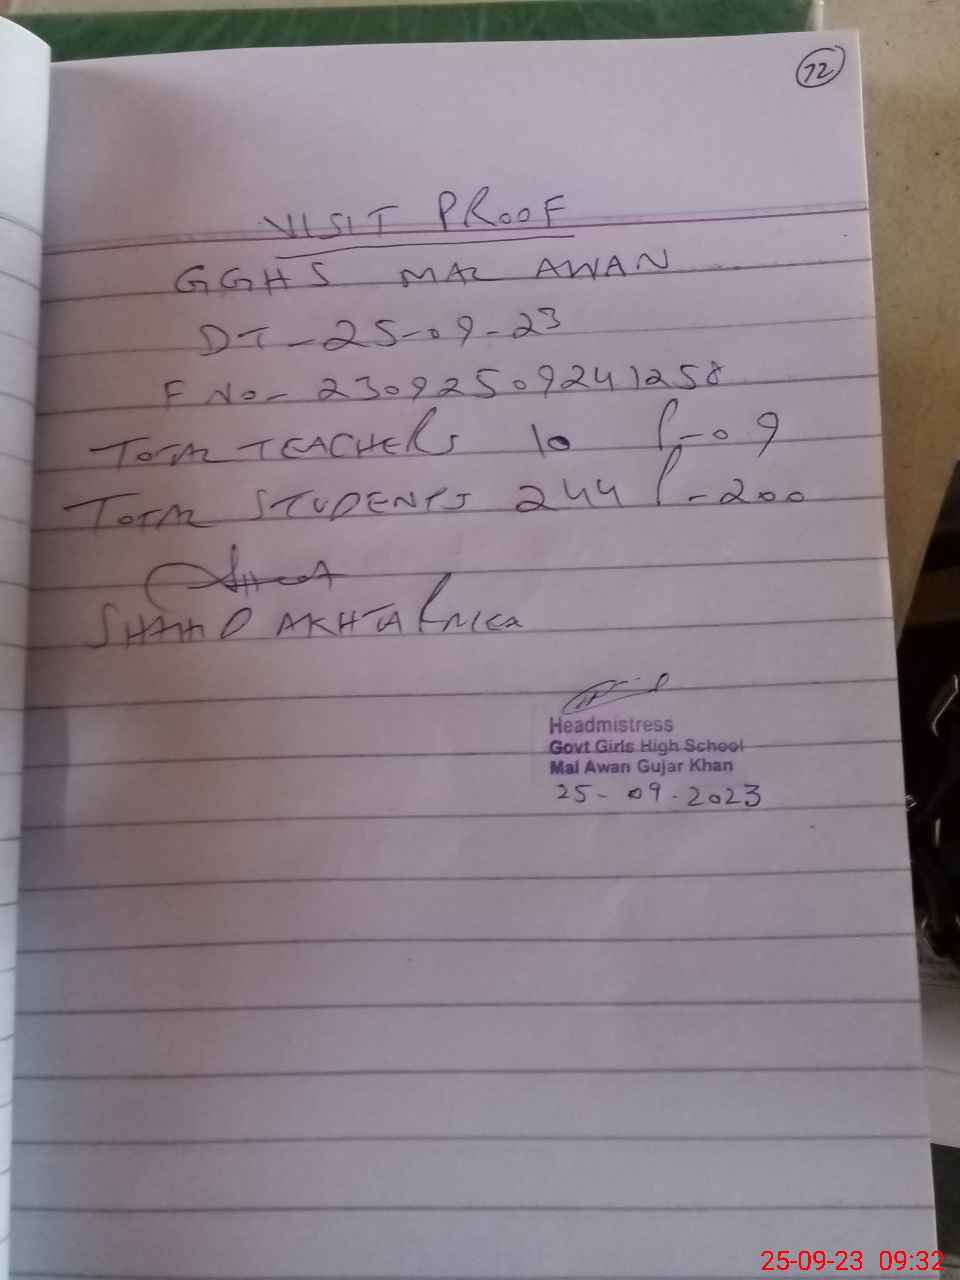 72
VISIT PROOF
GGHS MAL AWAN
DT - 25-09-23
F No - 23092509241258
TOTAL TEACHERS 10 P-09
TOTAL STUDENTS 244 P-200
SHAHID AKHTAR MEA
Headmistress
Govt Girls High School
Mal Awan Gujar Khan
25-09-2023
25-09-23 09:32